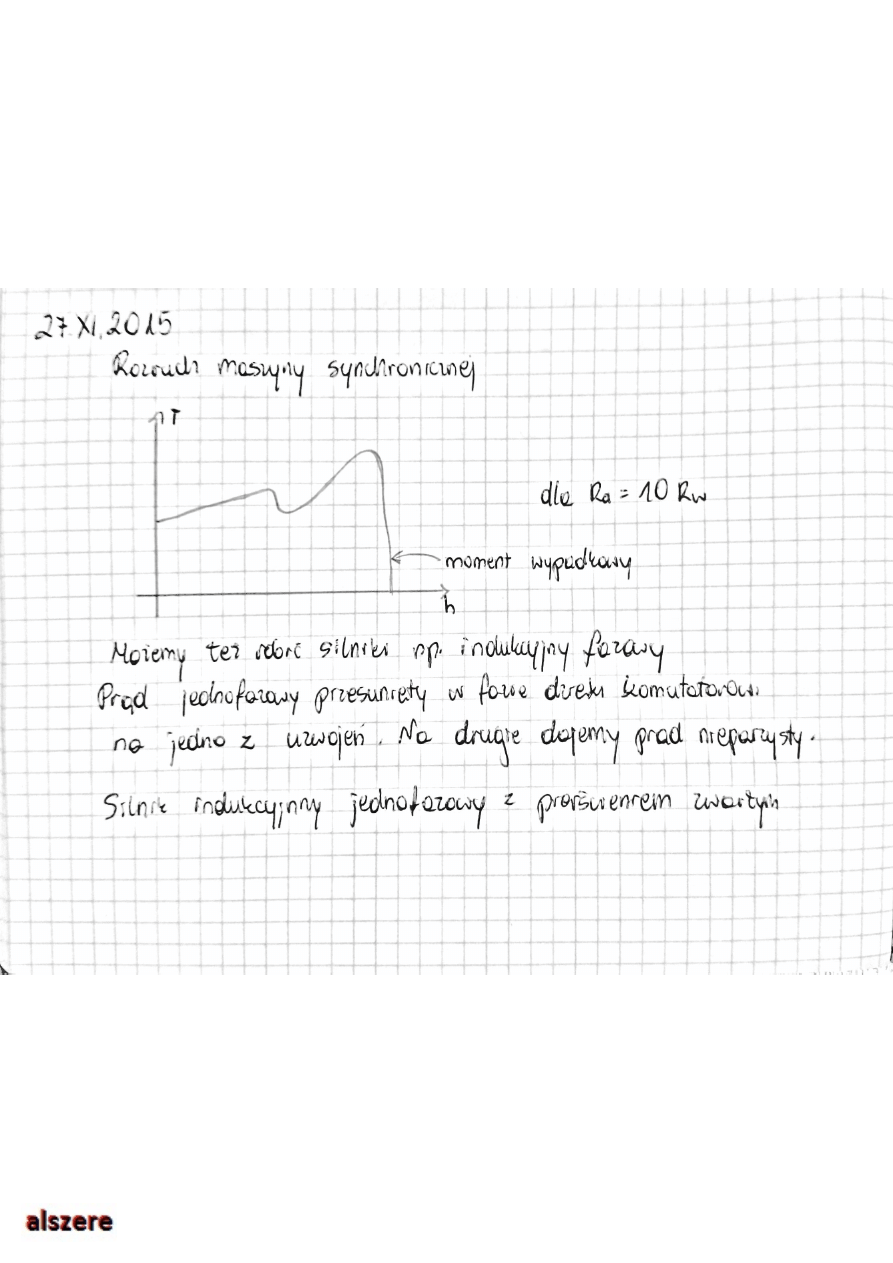 27.XI.2015
Rozruch maszyny synchronicznej
T
dla Ra = 10 Rw
moment wypadkowy
n
Możemy też robić silniki np. indukcyjny fazowy
Prąd jednofazowy przesunięty w fazie dzięki komutatorowi
na jedno z uzwojeń. Na drugie dajemy prąd nieparzysty.
Silnik indukcyjnny jednofazowy z pierścieniem zwartym
alszere